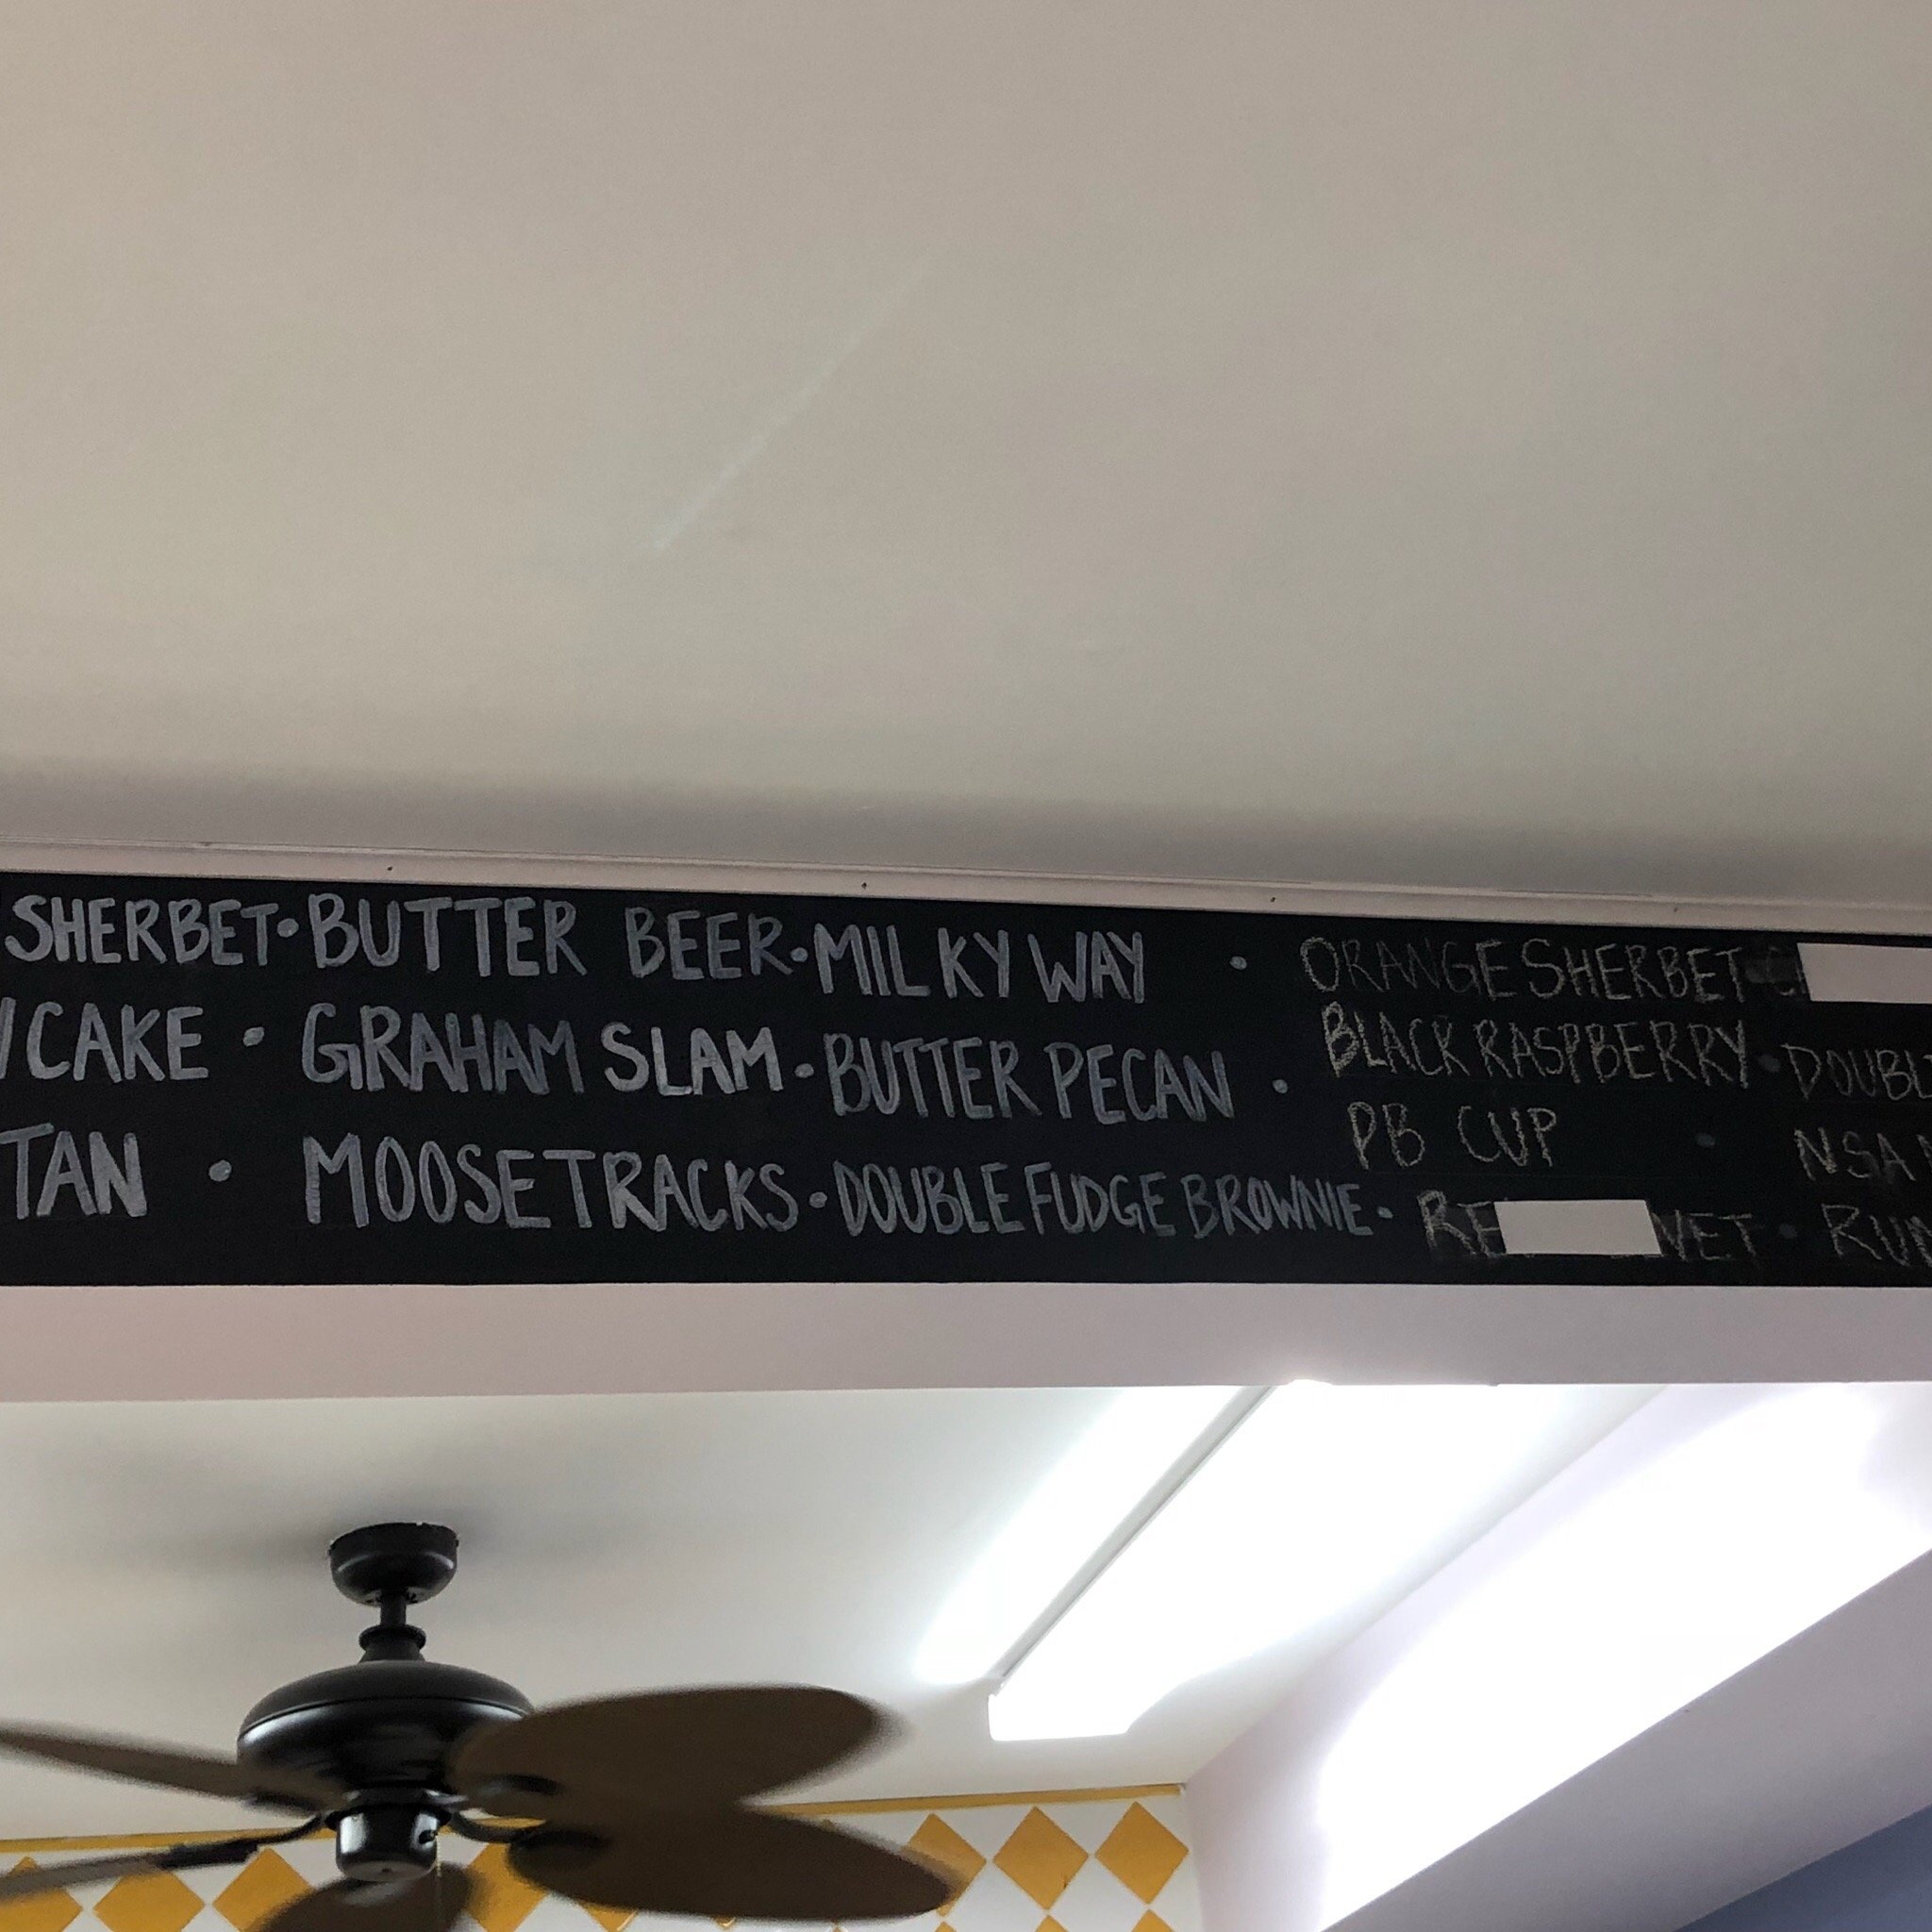 SHERBET • BUTTER BEER • MILKY WAY • ORANGE SHERBET •
CAKE • GRAHAM SLAM • BUTTER PECAN • BLACK RASPBERRY • DOUBLE
TAN • MOOSETRACKS • DOUBLE FUDGE BROWNIE • PB CUP • NSA
RE VET • RUN